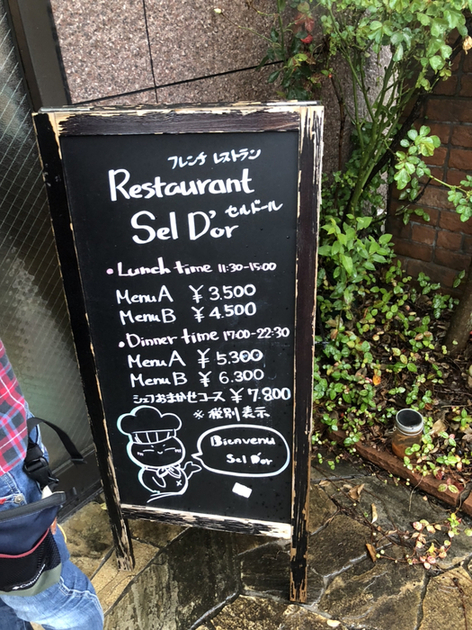 フレンチ レストラン
Restaurant
Sel D'or セルドール
• Lunch time 11:30-15:00
Menu A ￥3.500
Menu B ￥4.500
• Dinner time 17:00-22:30
Menu A ￥5.300
Menu B ￥6.300
シェフおまかせコース ￥7.800
※税別表示
Bienvenu
Sel D'or